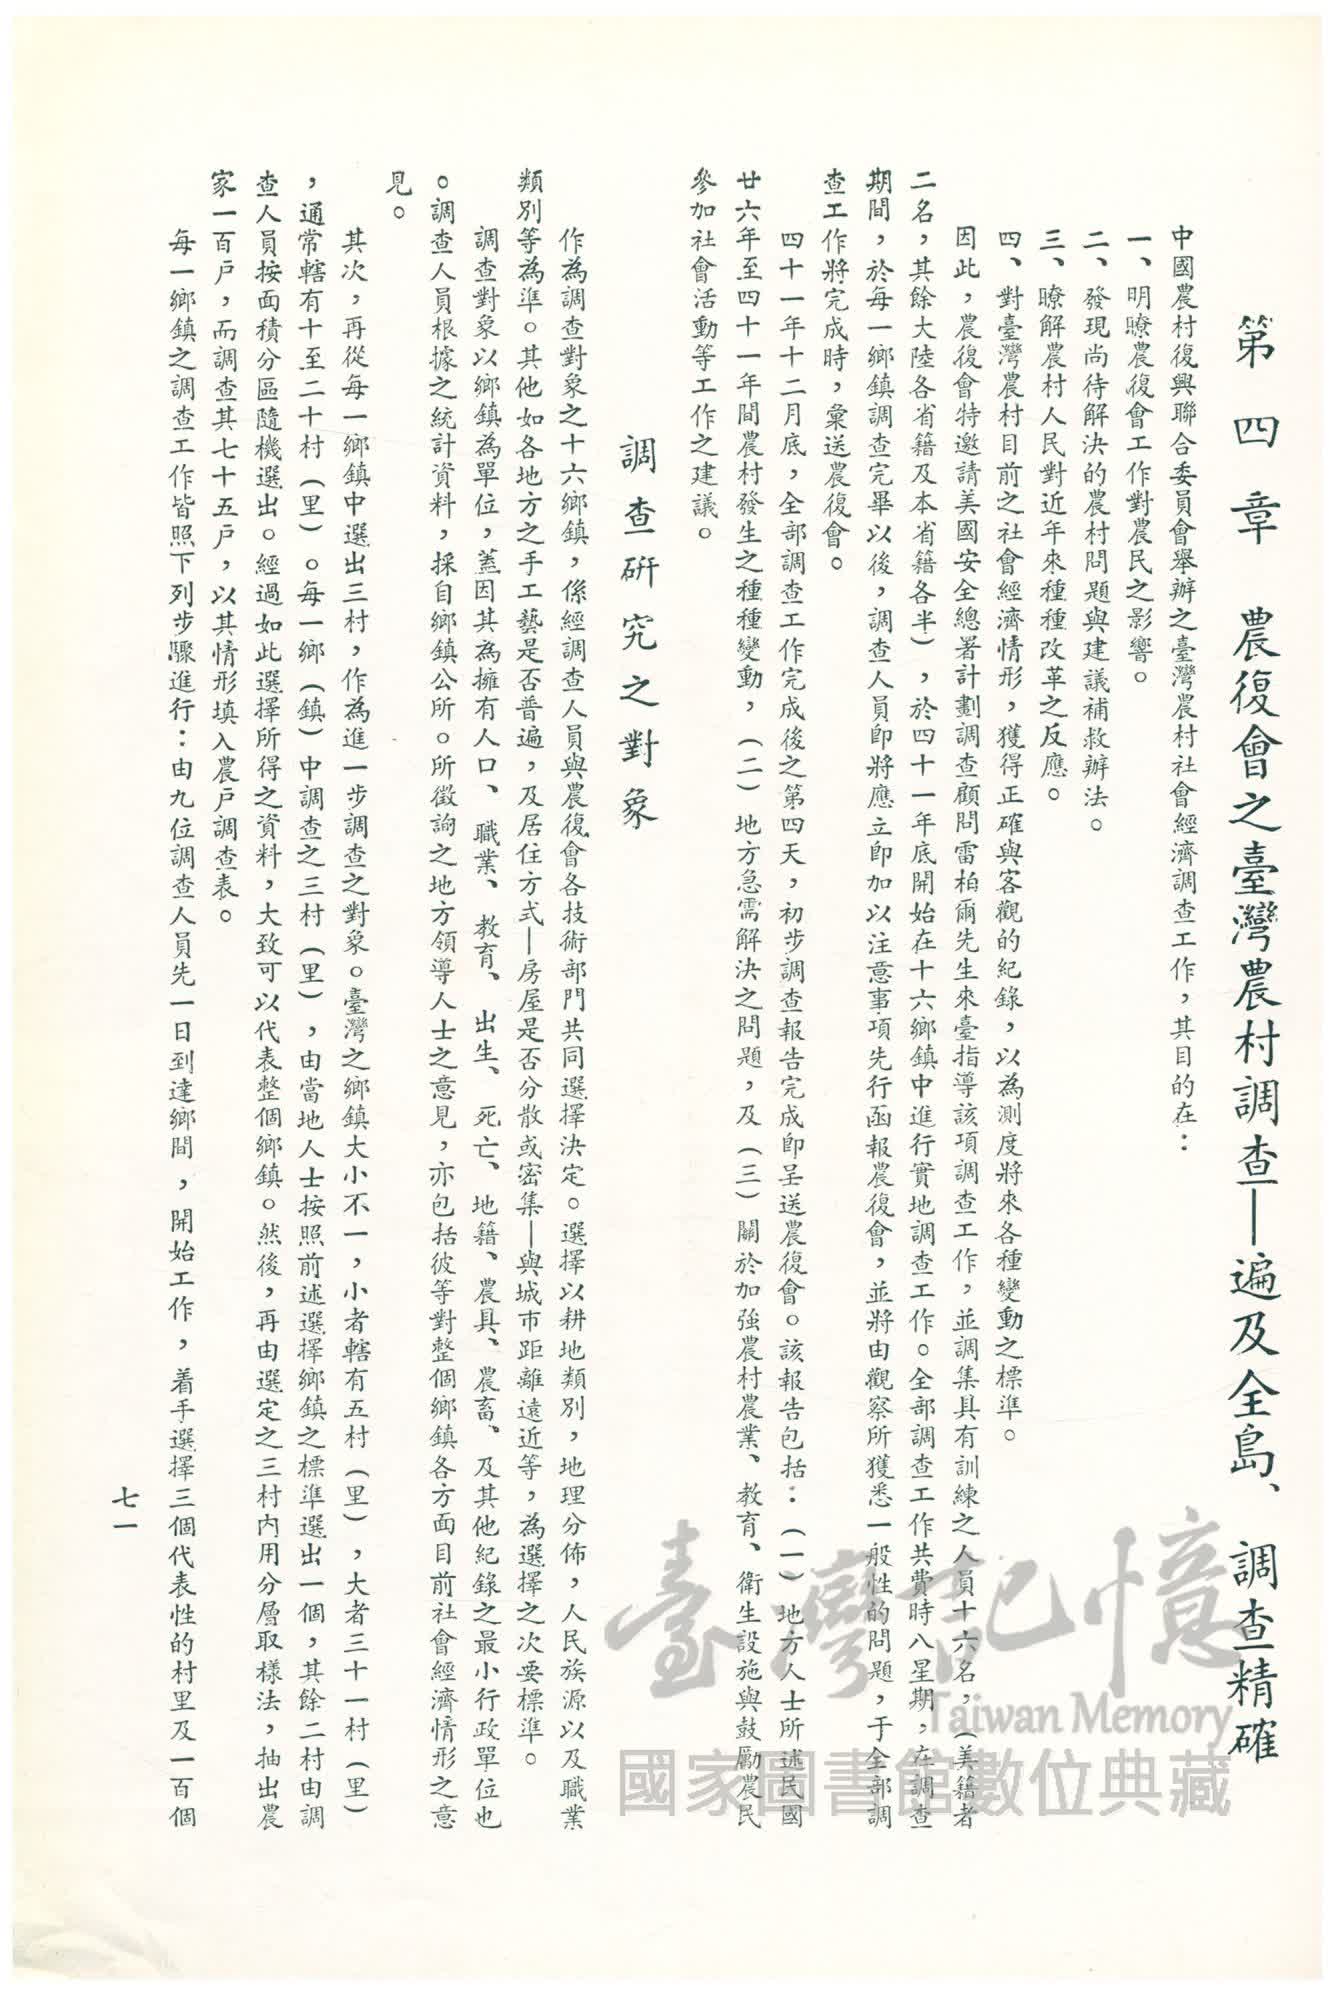 第四章　農復會之臺灣農村調查—遍及全島、調查精確
中國農村復興聯合委員會舉辦之臺灣農村社會經濟調查工作，其目的在：
一、明瞭農復會工作對農民之影響。
二、發現尚待解決的農村問題與建議補救辦法。
三、瞭解農村人民對近年來種種改革之反應。
四、對臺灣農村目前之社會經濟情形，獲得正確與客觀的紀錄，以為測度將來各種變動之標準。
因此，農復會特邀請美國安全總署計劃調查顧問雷柏爾先生來臺指導該項調查工作，並調集具有訓練之人員十六名，（美籍者
二名，其餘大陸各省籍及本省籍各半），於四十一年底開始在十六鄉鎮中進行實地調查工作。全部調查工作共費時八星期，在調查
期間，於每一鄉鎮調查完畢以後，調查人員即將應立即加以注意事項先行函報農復會，並將由觀察所獲悉一般性的問題，于全部調
查工作將完成時，彙送農復會。
四十一年十二月底，全部調查工作完成後之第四天，初步調查報告完成即呈送農復會。該報告包括：（一）地方人士所述民國
廿六年至四十一年間農村發生之種種變動，（二）地方急需解決之問題，及（三）關於加強農村農業、教育、衛生設施與鼓勵農民
參加社會活動等工作之建議。
調查研究之對象
作為調查對象之十六鄉鎮，係經調查人員與農復會各技術部門共同選擇決定。選擇以耕地類別，地理分佈，人民族源以及職業
類別等為準。其他如各地方之手工藝是否普遍，及居住方式—房屋是否分散或密集—與城市距離遠近等，為選擇之次要標準。
調查對象以鄉鎮為單位，蓋因其為擁有人口、職業、教育、出生、死亡、地籍、農具、農畜、及其他紀錄之最小行政單位也
。調查人員根據之統計資料，採自鄉鎮公所。所徵詢之地方領導人士之意見，亦包括彼等對整個鄉鎮各方面目前社會經濟情形之意
見。
其次，再從每一鄉鎮中選出三村，作為進一步調查之對象。臺灣之鄉鎮大小不一，小者轄有五村（里），大者三十一村（里）
，通常轄有十至二十村（里）。每一鄉（鎮）中調查之三村（里），由當地人士按照前述選擇鄉鎮之標準選出一個，其餘二村由調
查人員按面積分區隨機選出。經過如此選擇所得之資料，大致可以代表整個鄉鎮。然後，再由選定之三村內用分層取樣法，抽出農
家一百戶，而調查其七十五戶，以其情形填入農戶調查表。
每一鄉鎮之調查工作皆照下列步驟進行：由九位調查人員先一日到達鄉間，開始工作，着手選擇三個代表性的村里及一百個
七一
臺灣記憶
Taiwan Memory
國家圖書館數位典藏